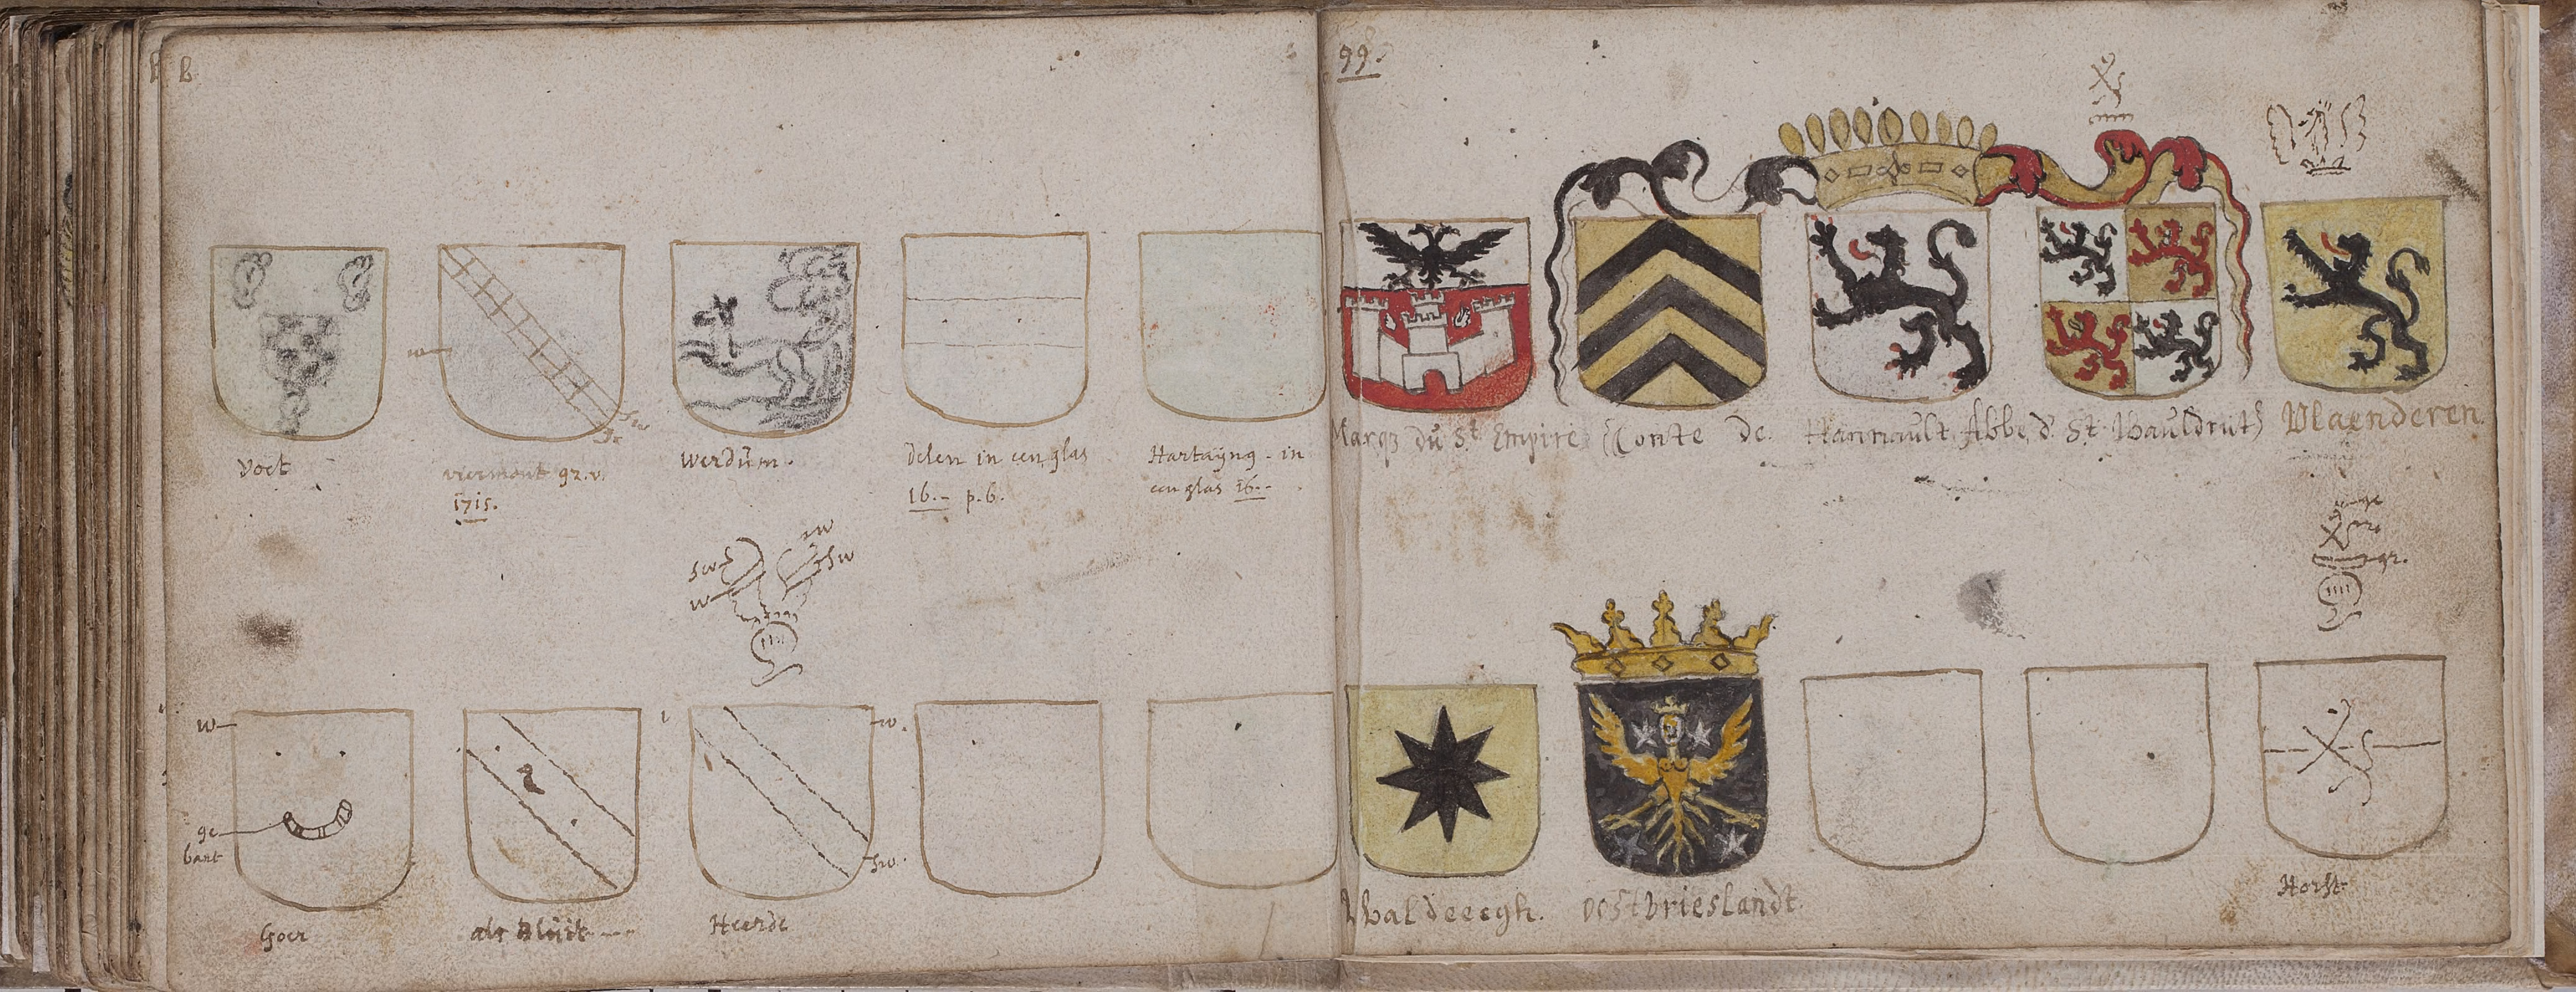 B B
w
gr
sw
Voet
viermont gr. v.
1715.
Werdum.
Delen in een glas
16.- p. 6.
Hartayng. in
een glas 16.-
sw
w
w
sw
w
ge
bart
w.
sw.
Goer
als Bluit
Heerde
99.
Marqz du St Empire
Conte de Hannault Abbe d. St. Wauldrut
Vlaenderen
ge
gr.
Waldeecgh.
oostvrieslandt
Horst